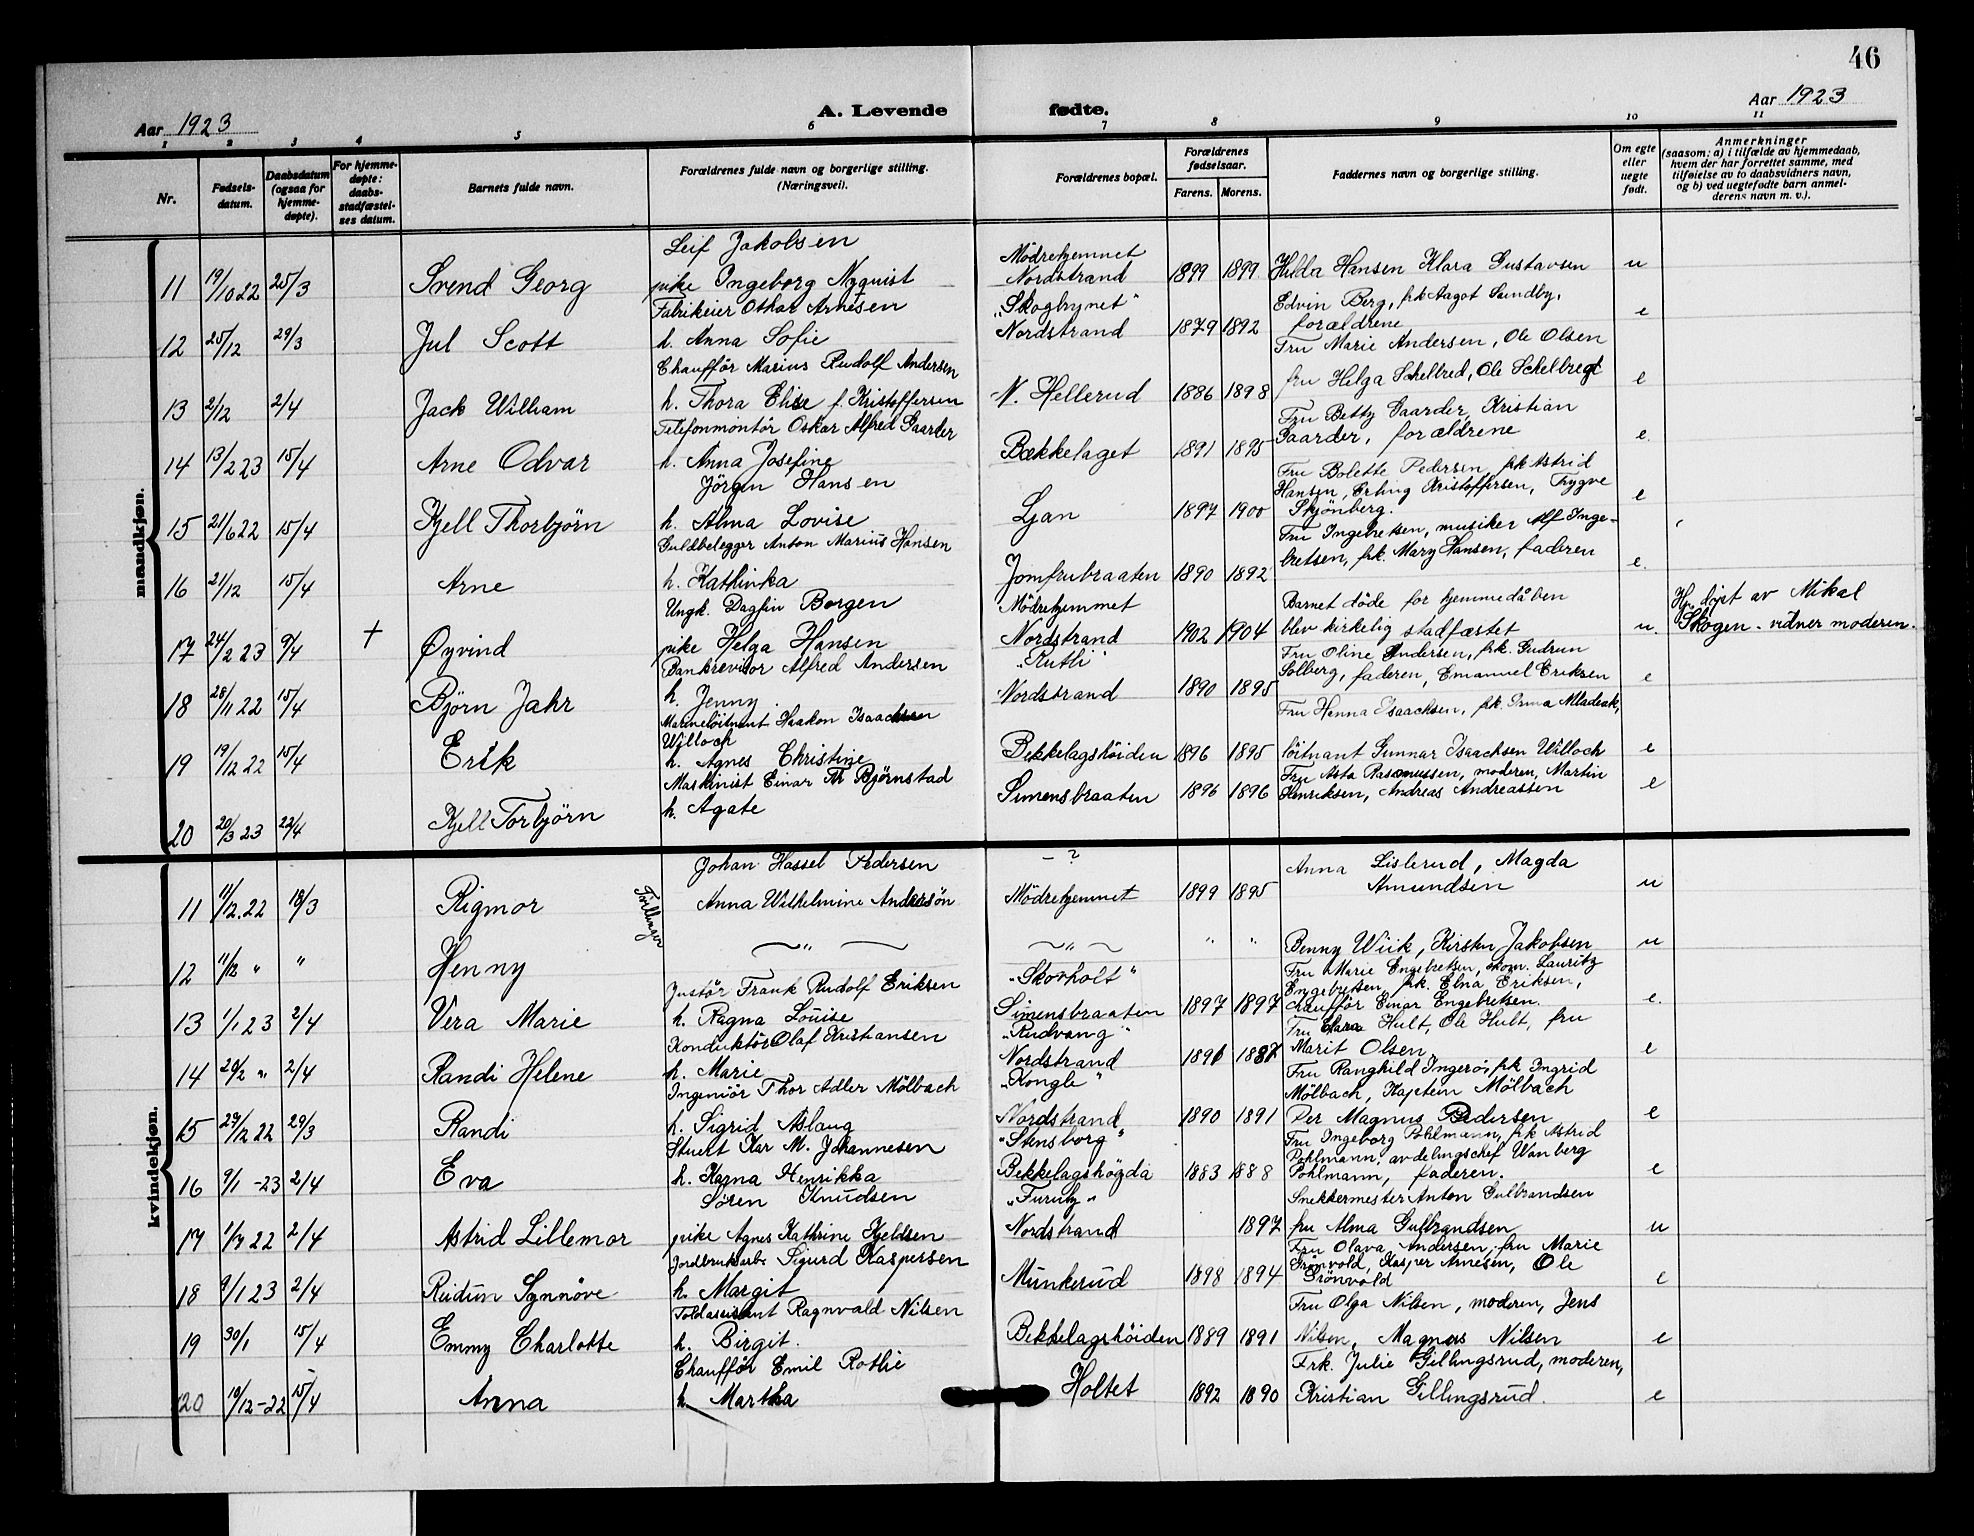 46
Aar 1923
A. Levende fødte.
Aar 1923
1 2 3 4 5 6 7 8 9 10 11
Nr.
Fødsels-
datum.
Daabsdatum
(ogsaa for
hjemme-
døpte).
For hjemme-
døpte:
daabs-
stadfæstel-
ses datum.
Barnets fulde navn.
Forældrenes fulde navn og borgerlige stilling.
(Næringsvei).
Forældrenes bopæl.
Forældrenes
fødselsaar.
Farens. Morens.
Faddernes navn og borgerlige stilling.
Om egte
eller
uegte
født.
Anmerkninger
(saasom: a) i tilfælde av hjemmedaab,
hvem der har forrettet samme, med
tilføielse av to daabsvidners navn,
og b) ved uegtefødte barn anmel-
derens navn m. v.).
mandkjøn.
Leif Jakobsen
Mödrehjemmet
11 19/10 22 25/3 Svend Georg pike Ingeborg Nyquist Nordstrand 1899 1899 Hilda Hansen Klara Gustavsen u
Fabrikeier Othar Arnesen "Skogbrynet" Edvin Berg, frk Aagot Sundby,
12 25/12 29/3 Jul Scott h. Anna Sofie Nordstrand 1879 1892 forældrene e
Chaufför Marius Rudolf Andersen Fru Marie Andersen, Ole Olsen
13 2/12 2/4 Jack William h. Thora Elise f. Kristoffersen N. Hellerud 1886 1898 fru Helga Schelbred, Ole Schelbregt e
Telefonmontör Oskar Alfred Gaarder Fru Betty Gaarder, Kristian
14 13/2 23 15/4 Arne Odvar h. Anna Josefine Bækkelaget 1891 1895 Gaarder, forældrene e.
Jörgen Hansen Fru Bolette Pedersen, frk Astrid
Hansen, Erling Kristoffersen, Trygve
15 21/6 22 15/4 Kjell Thorbjörn h. Alma Lovise Ljan 1897 1900 Skjönberg. e
Guldbelegger Anton Marius Hansen Fru Ingebretsen, musiker Alf Inge-
16 21/12 15/4 Arne h. Kathinka Jomfrubraaten 1890 1892 bretsen, frk. Mary Hansen, faderen e.
Ungk. Dagfin Borgen Mödrehjemmet Barnet döde för hjemmedåben Hj. döpt av Mikal
17 24/2 23 9/4 + Øyvind pike Helga Hansen Nordstrand 1902 1904 blev kirkelig stadfæstet u. Skogen - vidner moderen.
Bankrevisor Alfred Andersen "Rutli" Fru Oline Andersen, frk. Gudrun
18 28/11 22 15/4 Björn Jahr h. Jenny. Nordstrand 1890 1895 Solberg, faderen, Emanuel Eriksen e
Marinelöitnant Haakon Isaachsen Fru Hanna Isaachsen, frk.
Willoch
19 19/12 22 15/4 Erik h. Agnes Christine Bekkelagshöiden 1896 1895 löitnant Gunnar Isaachsen Willoch e
Maskinist Einar Bjørnstad Fru Asta Rasmussen, moderen, Martin
20 20/3 23 22/4 Kjell Torbjörn h. Agate Simensbraaten 1896 1896 Henriksen, Andreas Andreassen e
kvindekjøn.
Johan Hassel Pedersen - ? Anna Lislerud, Magda
11 11/12.22 18/3 Rigmor Tvillinger Anna Wilhelmine Andersön Mödrehjemmet 1899 1895 Amundsen u
12 11/12 " " Henny " " " " Benny Wiik, Kirsten Jakobsen u
Justör Frank Rudolf Eriksen "Skovholt" Fru Marie Engebretsen, skom. Lauritz
Engebretsen, frk. Elna Eriksen,
13 1/1 23 2/4 Vera Marie h. Ragna Louise Simensbraaten 1897 1897 chaufför Einar Engebretsen. e.
Konduktör Olaf Kristiansen "Rudvang" Fru Clara Hult, Ole Hult, fru
14 20/2 " 2/4 Randi Helene h. Marie Nordstrand 1891 1887 Marit Olsen e
Ingeniör Thor Adler Mölbach "Kongle" Fru Ranghild Ingerö, frk Ingrid
Mölbach, Kaptein Mölbach
15 27/2 22 29/3 Randi h. Sigrid Aslaug Nordstrand 1890 1891 Per Magnus Pedersen e
Stuert Kar M. Johannesen "Stensborg" Fru Ingeborg Pohlmann, frk Astrid
Pohlmann, avdelingschef Wanberg
16 9/1 -23 2/4 Eva h. Karna Henrikka Bekkelagshögda 1883 1888 Pohlmann, faderen. e
Sören Knudsen "Furuly" Snekkermester Anton Gulbrandsen
17 1/7 22 2/4 Astrid Lillemor pike Agnes Kathrine Kjeldsen Nordstrand 1897 fru Alma Gulbrandsen u
Jordbruksarb. Sigurd Kaspersen Fru Olava Andersen, fru Marie
Grönvold, Kasper Arnesen, Ole
18 9/1 23 2/4 Reidun Synnöve h. Margit Munkerud 1898 1894 Grönvold e
Toldassistent Ragnvald Nilsen Fru Olga Nilsen, moderen, Jens
19 30/1 15/4 Emmy Charlotte h. Birgit. Bekkelagshöiden 1889 1891 Nilsen, Magnus Nilsen e
Chauffför Emil Rothe Frk. Julie Gillingsrud, moderen,
20 19/12-22 15/4 Anna h. Martha Holtet 1892 1890 Kristian Gillingsrud. e